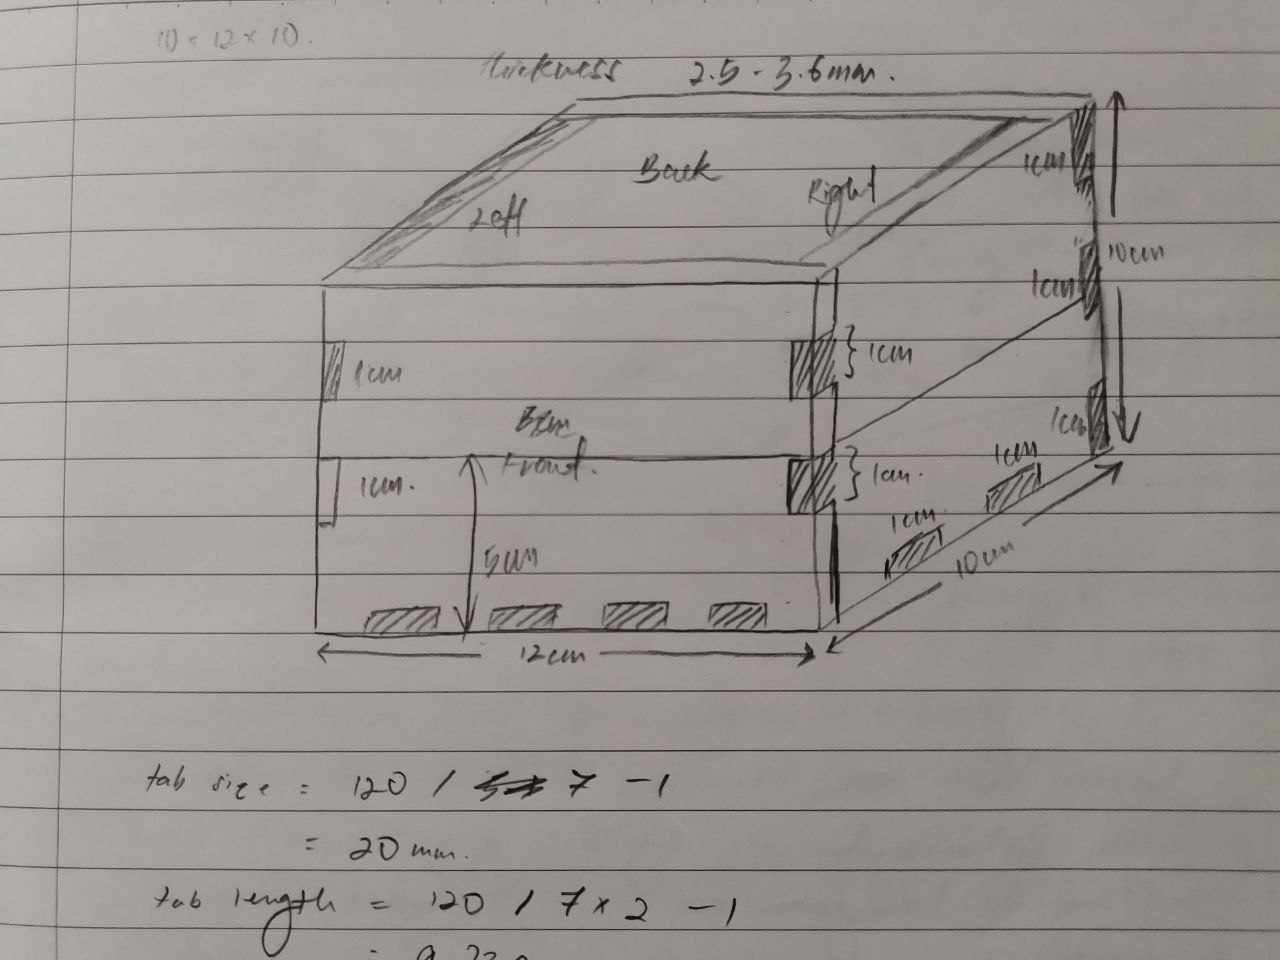 10 × 12 × 10.
thickness 2.5 - 3.6mm.
Back
Right
Left
1cm
1cm
10cm
1cm
1cm
1cm
Front.
1cm.
1cm.
1cm
5cm
1cm
1cm
10cm
12cm
tab size = 120 / 7 -1
= 20mm.
tab length = 120 / 7 × 2 -1